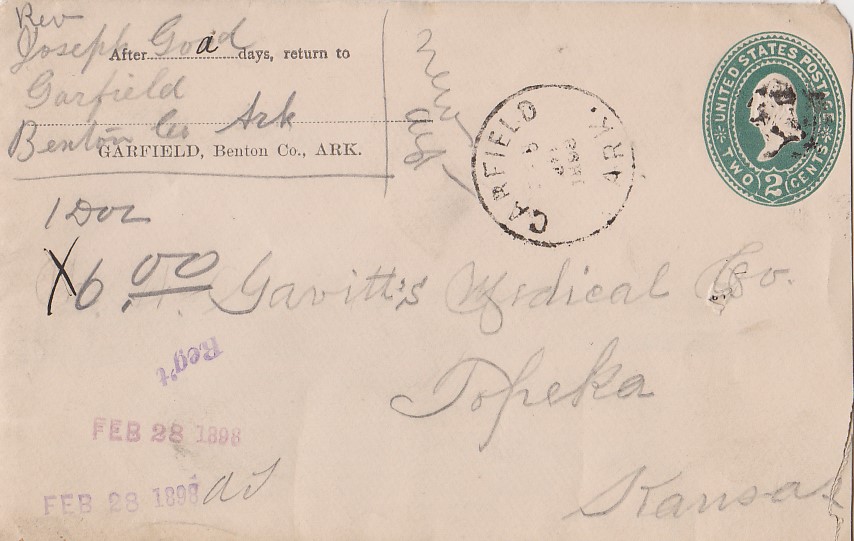 Rev
Joseph Good
After a days, return to
Garfield
Benton Co Ark
GARFIELD, Benton Co., ARK.
New
GARFIELD ARK.
1898
UNITED STATES POSTAGE
TWO 2 CENTS
1 Doz
X6.00 Gavitt's Medical Co.
Reg't
Topeka
FEB 28 1898
FEB 28 1898
Kansas